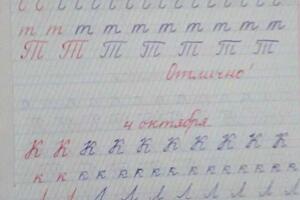 т т т т т т т т т т
Т Т Т Т Т Т Т Т
Отлично!
4 октября
К К К К К К К К К К
к к к к к к к к к к к к